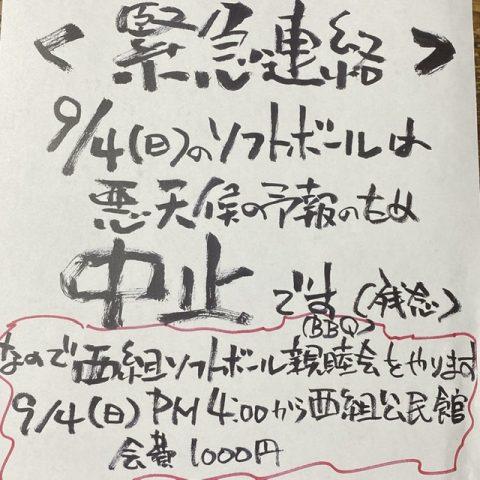 <緊急連絡>
9/4(日)のソフトボールは
悪天候の予報のため
中止です(残念)
(BBQ)
なので西組ソフトボール親睦会をやります
9/4(日)PM4:00から西組公民館
会費1000円